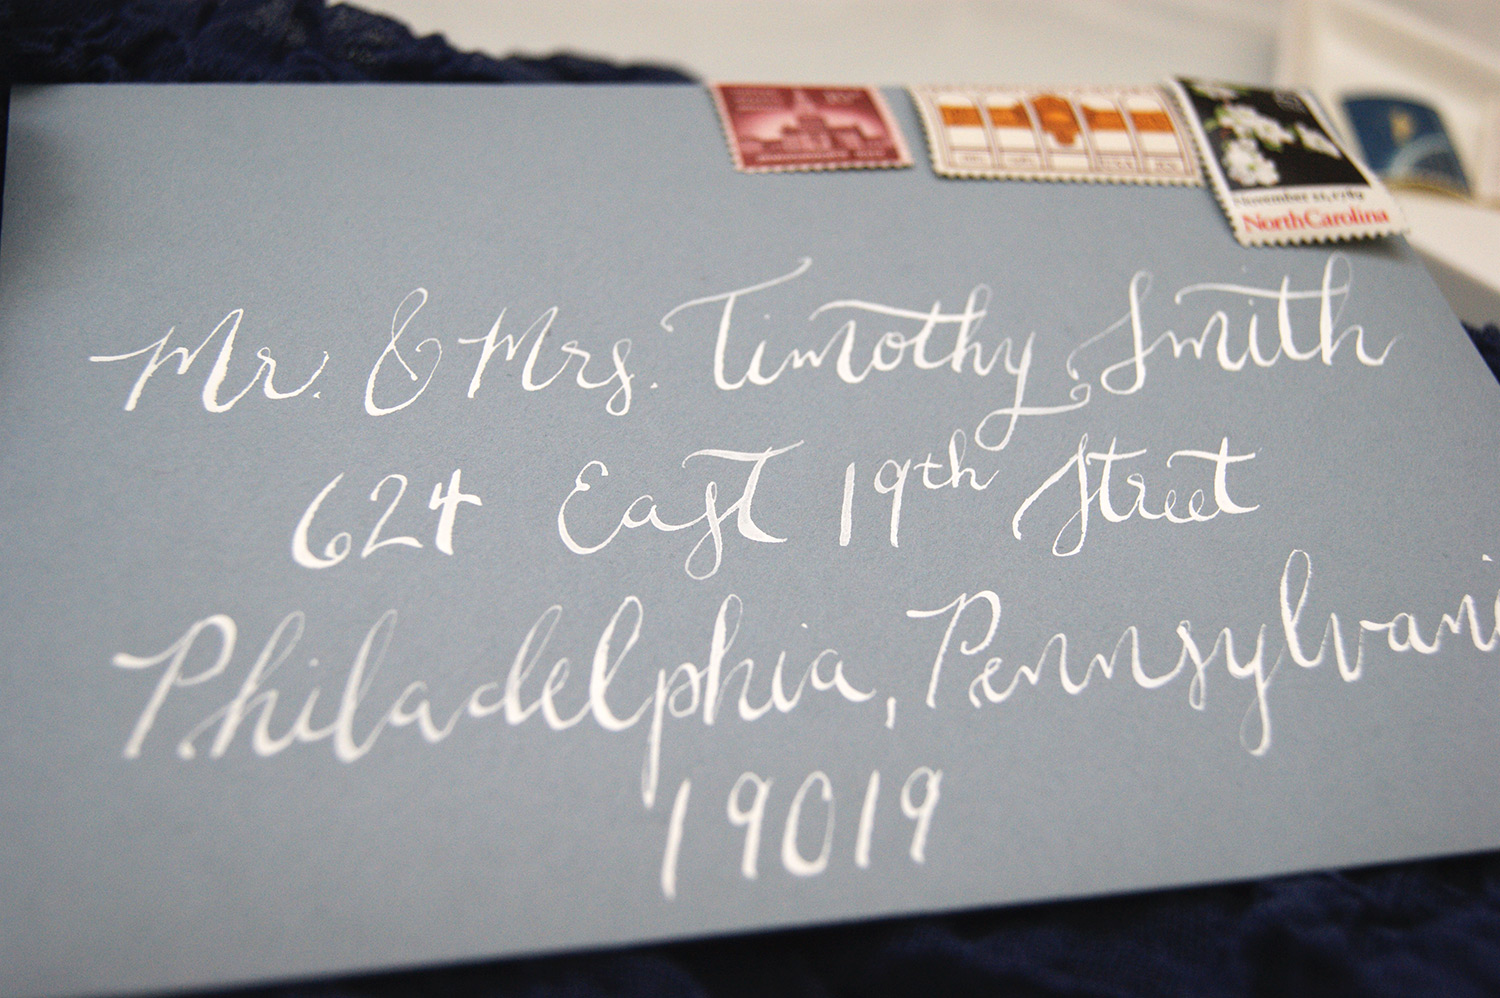 November 21, 1789
North Carolina
Mr. & Mrs. Timothy Smith
624 East 19th Street
Philadelphia, Pennsylvani
19019